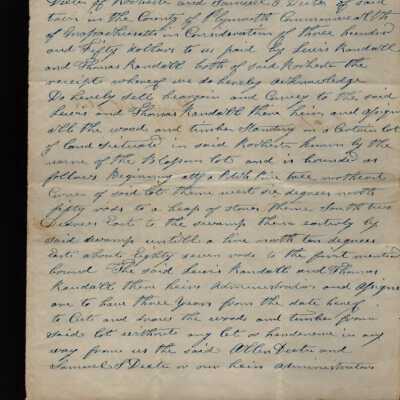 Dexter of Rochester and Samuel S Dexter of said
town in the County of Plymouth Commonwealth
of Massachusetts in Consideration of three hundred
and Fifty dollars to us paid by Lewis Randall
and Thomas Randall both of said Rochester the
receipts whereof we do hereby acknowledge
Do hereby sell bargain and Convey to the said
Lewis and Thomas Randall there heirs and assigns
all the wood and timber Standing on a Certain lot
of land Situated in said Rochester known by the
name of the Blossom lot and is bounded as
follows Beginning att a White Pine tree northeast
Corner of said lot thence west six degrees north
fifty rods to a heap of stones thence South two
Degrees East to the swamp thence easterly by
said swamp untill a line north ten degrees
East about Eighty seven rods to the first mentioned
bound The said Lewis Randall and Thomas
Randall there heirs Administrators and assigns
are to have three years from the date hereof
to Cut and the wood and timber from
said lot without any let or hinderence in any
way from us the said Allen Dexter and
Samuel S Dexter or our heirs administrators